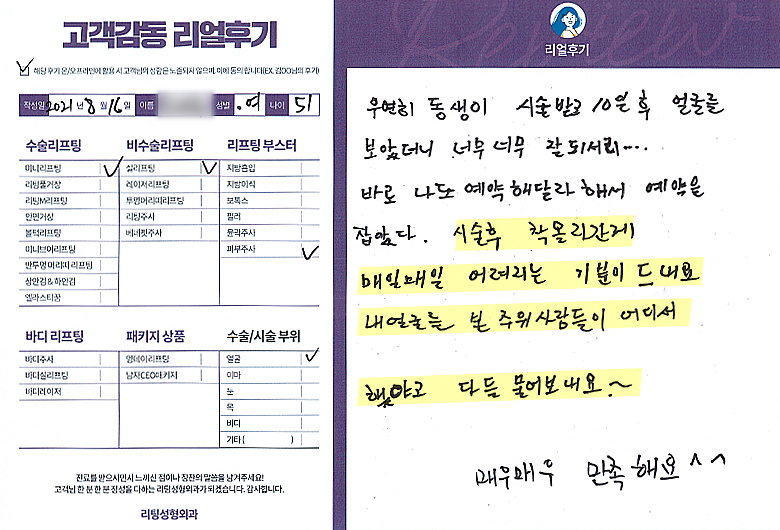 고객감동 리얼후기
해당 후기 온/오프라인에 활용 시 고객님의 성함은 노출되지 않으며, 이에 동의 합니다(EX. 김OO님의 후기)
작성일 2021년 8월 16일 이름 성별 여 나이 51
수술리프팅 비수술리프팅 리프팅 부스터
미니리프팅 실리프팅 지방흡입
리팅풀거상 레이저리프팅 지방이식
리팅M리프팅 투명머리띠리프팅 보톡스
안면거상 리팅주사 필러
볼턱리프팅 베네핏주사 윤곽주사
미니브이리프팅 피부주사
반투명 머리띠 리프팅
상안검 & 하안검
엘라스티꿈
바디 리프팅 패키지 상품 수술/시술 부위
바디주사 영데이리프팅 얼굴
바디실리프팅 남자CEO패키지 이마
바디레이저 눈
목
바디
기타 ( )
진료를 받으시면서 느끼신 점이나 칭찬의 말씀을 남겨주세요!
고객님 한 분 한 분 정성을 다하는 리팅성형외과가 되겠습니다. 감사합니다.
리팅성형외과
Review
리얼후기
우연히 동생이 시술받고 10일 후 얼굴을
보았더니 너무 너무 잘 되서리...
바로 나도 예약해달라 해서 예약을
잡았다. 시술후 착올리간게
매일매일 어려지는 기분이 드네요
내얼굴을 본 주위사람들이 어디서
했냐고 다들 물어보네요~
매우매우 만족해요^^